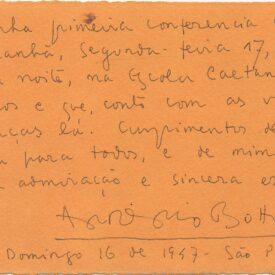 nha primeira conferencia
anhã, Segunda-feira 17,
a noite, na Escola Caetan
os e que, conto com as v
nças lá. Cumprimentos de
a para todos, e de mim
admiração e sincera es
António Bott
Domingo 16 de 1947 - São P